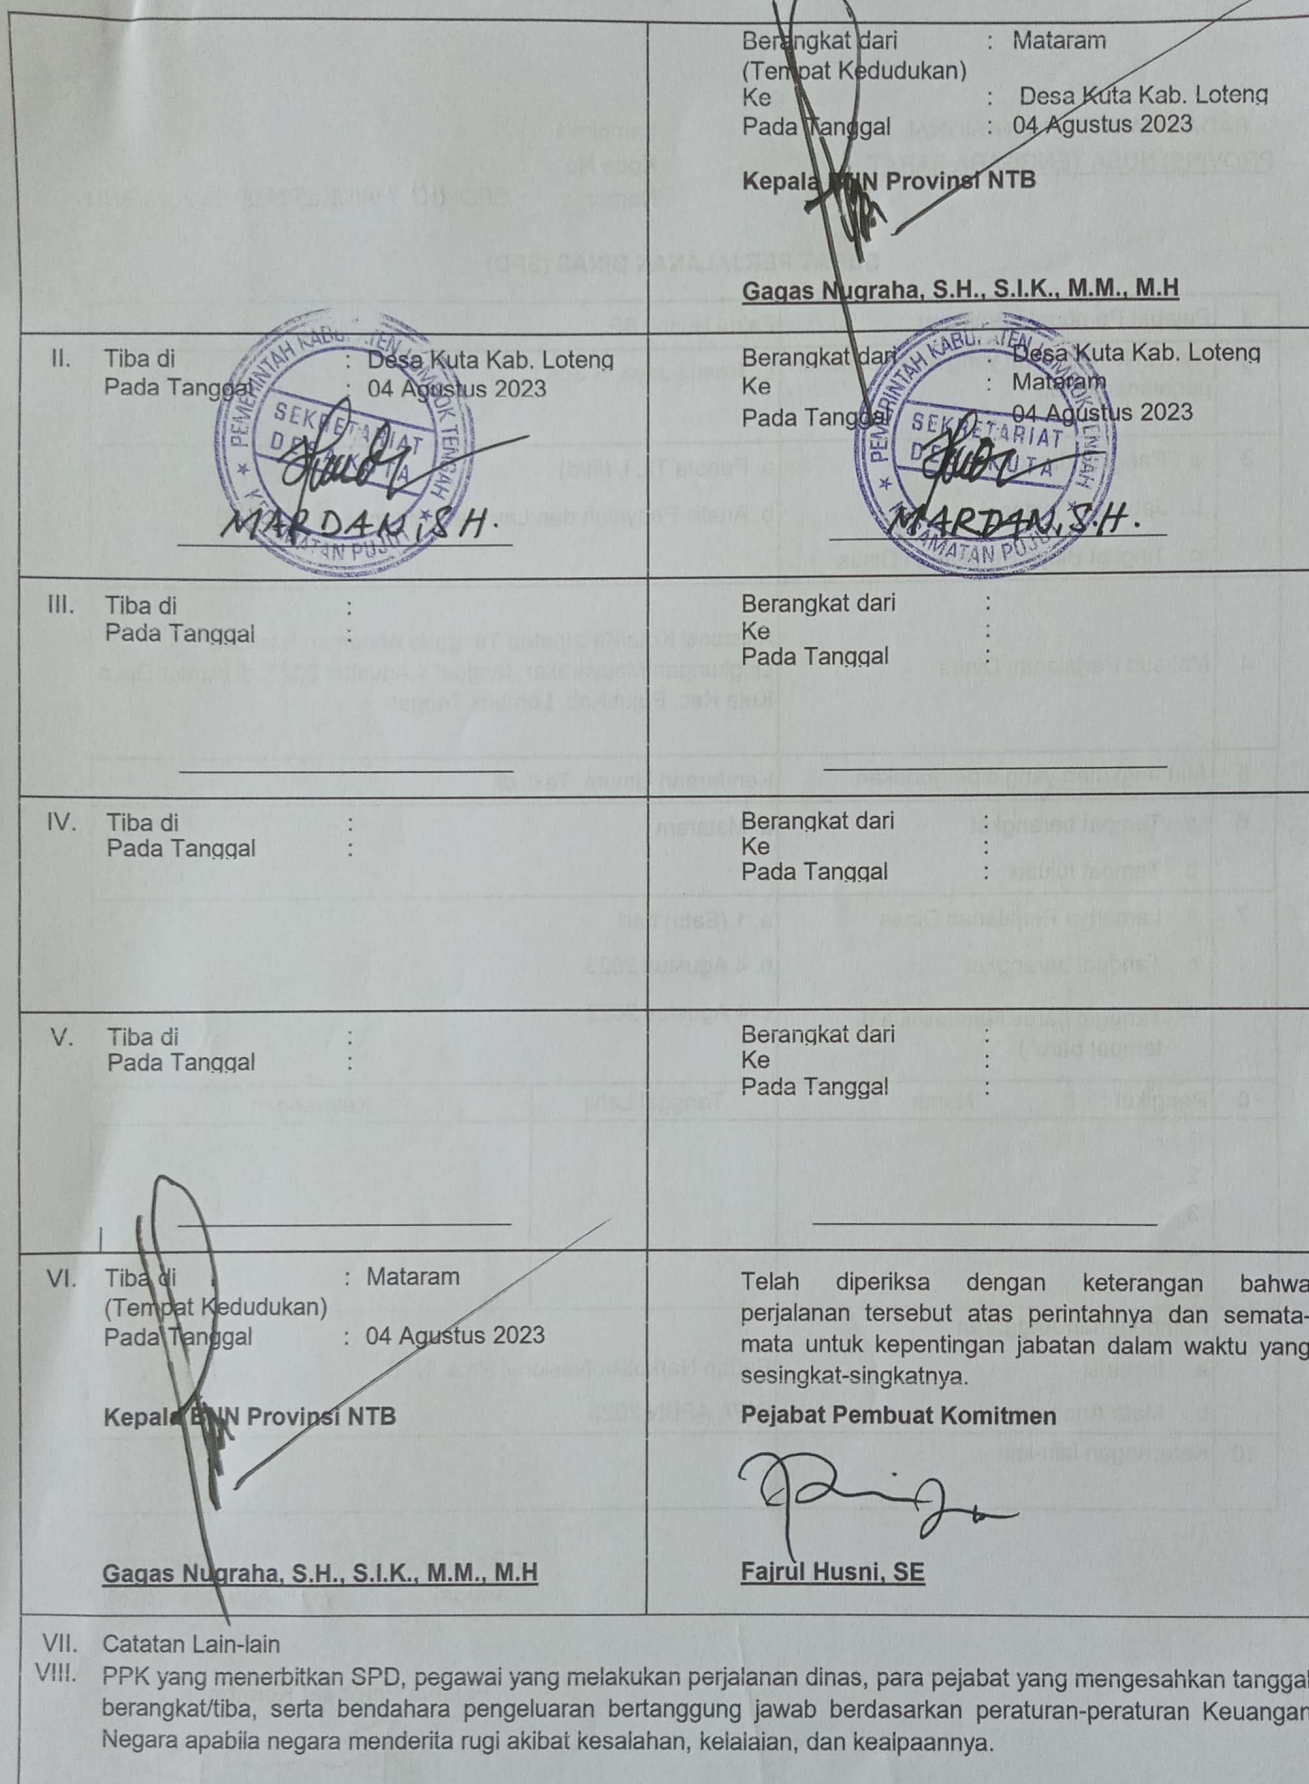 Berangkat dari : Mataram
(Tempat Kedudukan)
Ke : Desa Kuta Kab. Loteng
Pada Tanggal : 04 Agustus 2023
Kepala BNN Provinsi NTB
Gagas Nugraha, S.H., S.I.K., M.M., M.H
II. Tiba di : Desa Kuta Kab. Loteng
Pada Tanggal : 04 Agustus 2023
PEMERINTAH KABUPATEN LOMBOK TENGAH
SEKRETARIAT
DESA KUTA
KECAMATAN PUJUT
MARDAN, S.H.
Berangkat dari : Desa Kuta Kab. Loteng
Ke : Mataram
Pada Tanggal : 04 Agustus 2023
PEMERINTAH KABUPATEN LOMBOK TENGAH
SEKRETARIAT
DESA KUTA
KECAMATAN PUJUT
MARDAN, S.H.
III. Tiba di :
Pada Tanggal :
Berangkat dari :
Ke :
Pada Tanggal :
IV. Tiba di :
Pada Tanggal :
Berangkat dari :
Ke :
Pada Tanggal :
V. Tiba di :
Pada Tanggal :
Berangkat dari :
Ke :
Pada Tanggal :
VI. Tiba di : Mataram
(Tempat Kedudukan)
Pada Tanggal : 04 Agustus 2023
Kepala BNN Provinsi NTB
Gagas Nugraha, S.H., S.I.K., M.M., M.H
Telah diperiksa dengan keterangan bahwa
perjalanan tersebut atas perintahnya dan semata-
mata untuk kepentingan jabatan dalam waktu yang
sesingkat-singkatnya.
Pejabat Pembuat Komitmen
Fajrul Husni, SE
VII. Catatan Lain-lain
VIII. PPK yang menerbitkan SPD, pegawai yang melakukan perjalanan dinas, para pejabat yang mengesahkan tanggal
berangkat/tiba, serta bendahara pengeluaran bertanggung jawab berdasarkan peraturan-peraturan Keuangan
Negara apabila negara menderita rugi akibat kesalahan, kelalaian, dan kealpaannya.